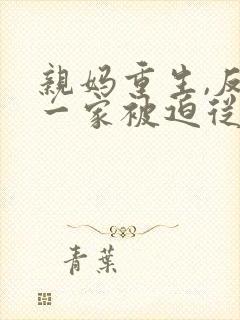 親妈重生,反
一家被迫從
青葉